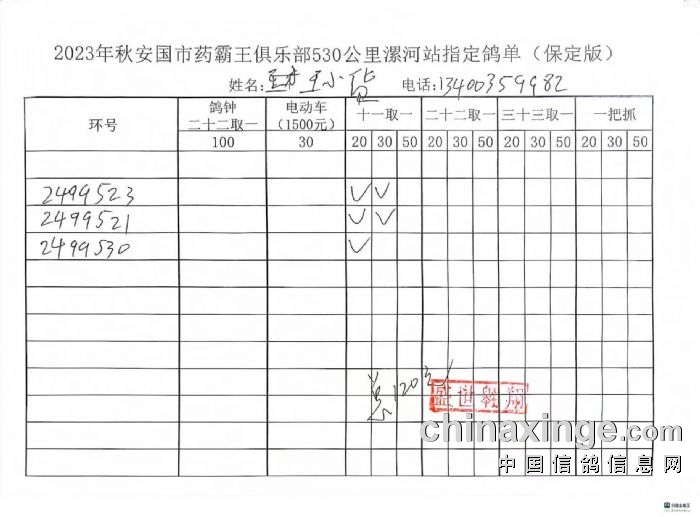 2023年秋安国市药霸王俱乐部530公里漯河站指定鸽单（保定版）
姓名: 王小货 电话:13400359982
环号 鸽钟 二十二取一 电动车 (1500元) 十一取一 二十二取一 三十三取一 一把抓
100 30 20 30 50 20 30 50 20 30 50 20 30 50
2499523 ✓ ✓
2499521 ✓ ✓
2499530 ✓
120元
盛世翱翔
chinaxinge.com
中国信鸽信息网